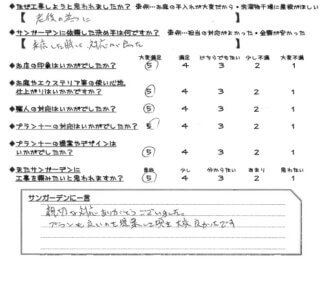 ◆なぜ工事しようと思われましたか? 事例…お庭の手入れが大変だから・洗濯物干場に屋根がほしい
【 老後の為に 】
◆サンガーデンに依頼した決め手は何ですか? 事例…担当の対応がよかった・金額が安かった
【 来店した時に対応が良かった 】
大変満足 少し満足 どちらでもない 少し不満 大変不満
◆お店の印象はいかがでしたか? 5 4 3 2 1
◆お庭やエクステリア等の使い心地、
仕上がりはいかがですか? 5 4 3 2 1
◆職人の対応はいかがでしたか? 5 4 3 2 1
◆プランナーの対応はいかがでしたか? 5 4 3 2 1
◆プランナーの提案やデザインは
いかがでしたか? 5 4 3 2 1
◆またサンガーデンに 是非 少し 分からない あまり 思わない
工事を頼みたいと思われますか? 5 4 3 2 1
サンガーデンに一言
親切な対応ありがとうございました。
プランも良いものを提案して頂き大変良かったです